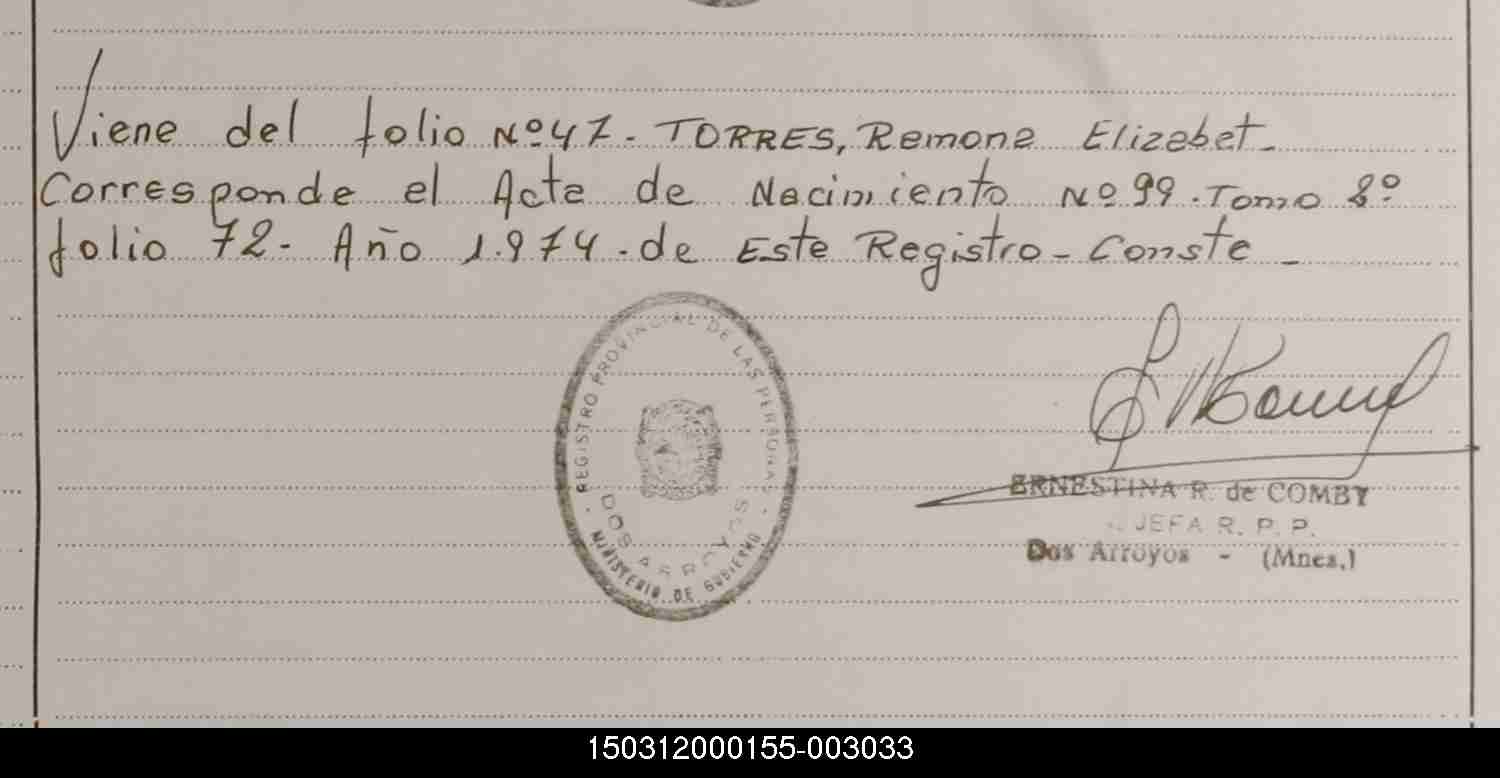 Viene del folio Nº 47.- TORRES, Ramona Elizabet.-
Corresponde al Acta de Nacimiento Nº 99. Tomo 8º
folio 72- Año 1.974.-de Este Registro- Conste -
REGISTRO PROVINCIAL DE LAS PERSONAS
DOS ARROYOS
MINISTERIO DE GOBIERNO
ERNESTINA R. de COMBY
JEFA R. P. P.
Dos Arroyos - (Mnes.)
150312000155-003033